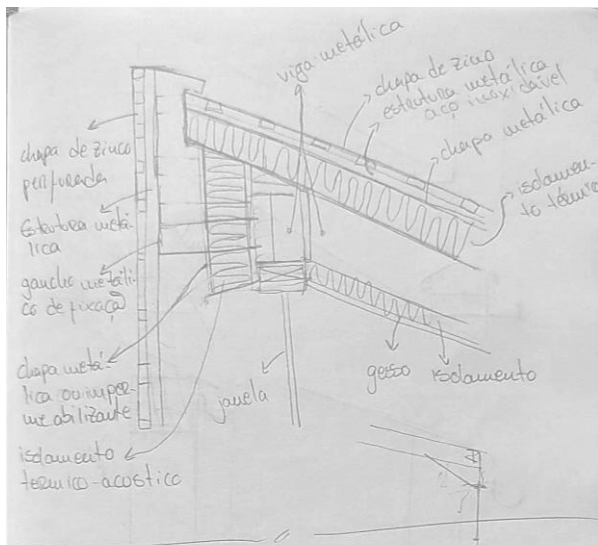 viga metálica
chapa de zinco
estrutura metálica
aço inoxidável
chapa metálica
isolamen-
to térmico
chapa de zinco
perfurada
Estrutura metá-
lica
gancho metáli-
co de fixação
chapa metá-
lica ou imper-
meabilizante
isolamento
termico-acostico
janela
gesso
isolamento